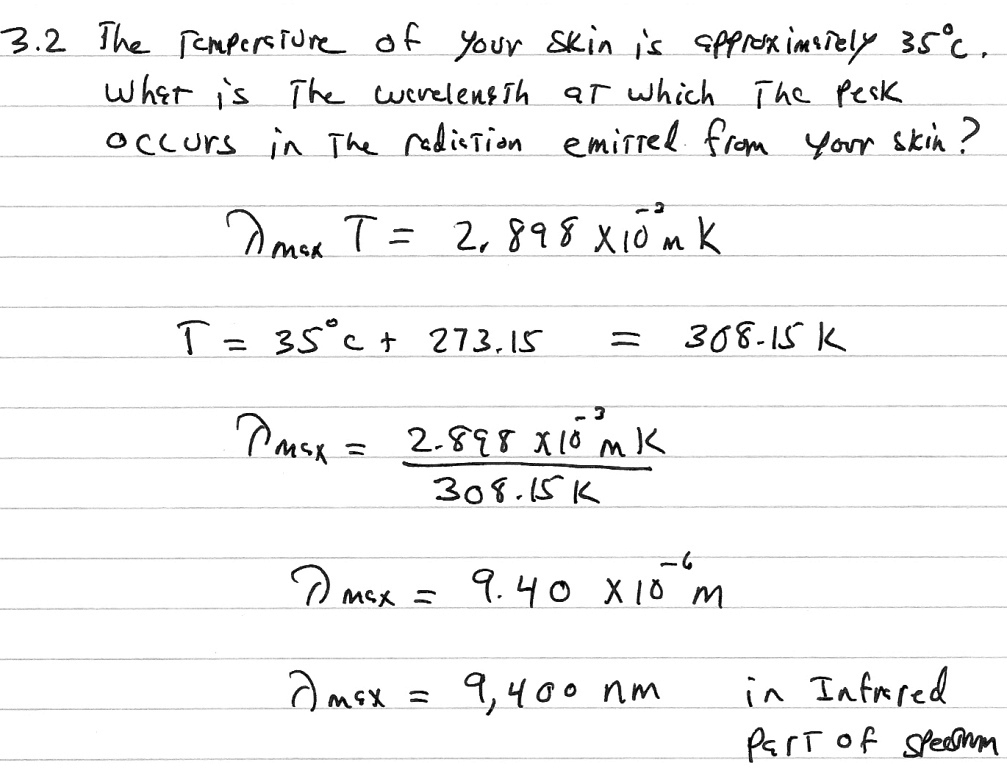 3.2 The Temperature of your skin is approximately 35°C.
What is The wavelength at which The peak
occurs in The radiation emitted from your skin?
λmax T = 2.898 X10⁻³ m K
T = 35°C + 273.15 = 308.15 K
λmax = 2.898 X10⁻³ m K
308.15 K
λmax = 9.40 X10⁻⁶ m
λmax = 9,400 nm in Infrared
part of spectrum